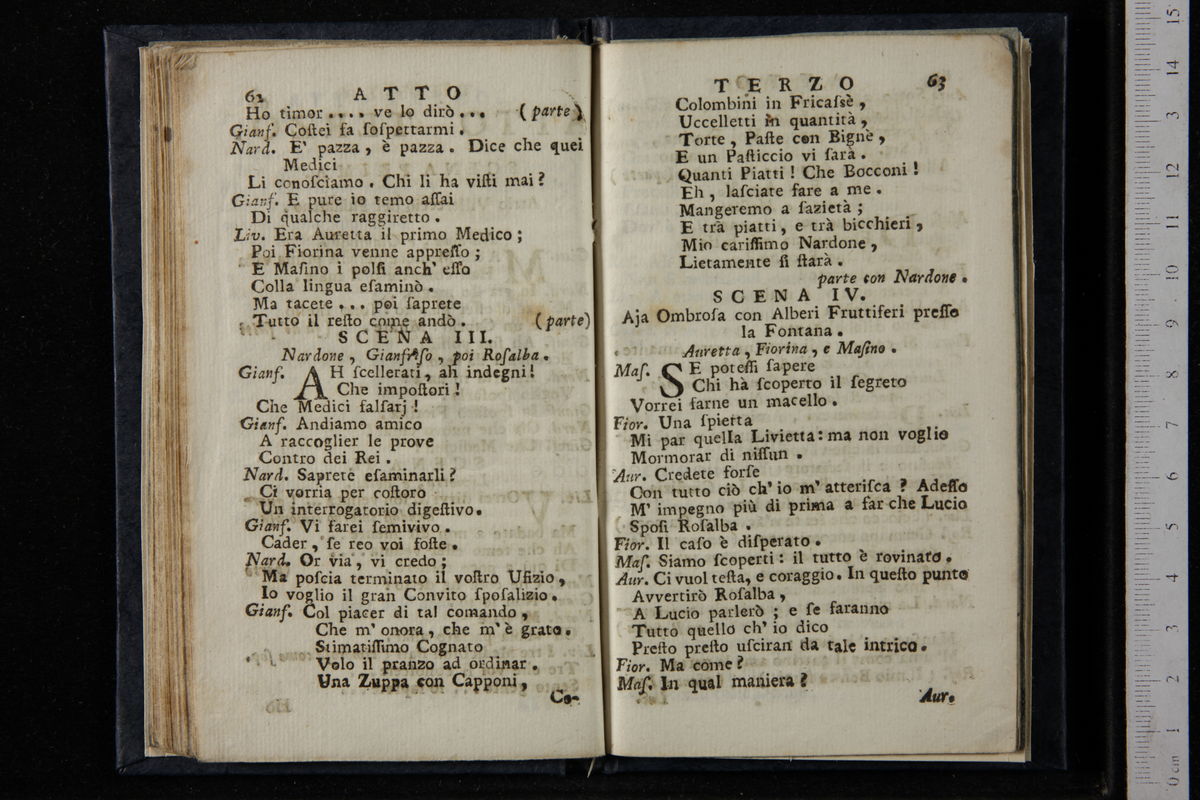 62 ATTO
Ho timor .... ve lo dirò ... (parte)
Gianf. Coſtei fa ſoſpettarmi.
Nard. E' pazza, è pazza. Dice che quei
Medici
Li conoſciamo. Chi li ha viſti mai?
Gianf. E pure io temo aſſai
Di qualche raggiretto.
Liv. Era Auretta il primo Medico;
Poi Fiorina venne appreſſo;
E Maſino i polſi anch' eſſo
Colla lingua eſaminò.
Ma tacete ... poi ſaprete
Tutto il reſto come andò. (parte)
SCENA III.
Nardone, Gianfraſo, poi Roſalba.
Gianf. AH ſcellerati, ah indegni!
Che impoſtori!
Che Medici falſarj!
Gianf. Andiamo amico
A raccoglier le prove
Contro dei Rei.
Nard. Saprete eſaminarli?
Ci vorria per coſtoro
Un interrogatorio digeſtivo.
Gianf. Vi farei ſemivivo.
Cader, ſe reo voi foſte.
Nard. Or via, vi credo;
Ma poſcia terminato il voſtro Ufizio,
Io voglio il gran Convito ſpoſalizio.
Gianf. Col piacer di tal comando,
Che m' onora, che m' è grato.
Stimatiſſimo Cognato
Volo il pranzo ad ordinar.
Una Zuppa con Capponi,
Co-
TERZO 63
Colombini in Fricaſsè,
Uccelletti in quantità,
Torte, Paſte con Bignè,
E un Paſticcio vi ſarà.
Quanti Piatti! Che Bocconi!
Eh, laſciate fare a me.
Mangeremo a ſazietà;
E trà piatti, e trà bicchieri,
Mio cariſſimo Nardone,
Lietamente ſi ſtarà.
parte con Nardone.
SCENA IV.
Aja Ombroſa con Alberi Fruttiferi preſſo
la Fontana.
Auretta, Fiorina, e Maſino.
Maſ. SE poteſſi ſapere
Chi hà ſcoperto il ſegreto
Vorrei farne un macello.
Fior. Una ſpietta
Mi par quella Livietta: ma non voglio
Mormorar di niſſun.
Aur. Credete forſe
Con tutto ciò ch' io m' atteriſca? Adeſſo
M' impegno più di prima a far che Lucio
Spoſi Roſalba.
Fior. Il caſo è diſperato.
Maſ. Siamo ſcoperti: il tutto è rovinato.
Aur. Ci vuol teſta, e coraggio. In queſto punto
Avvertirò Roſalba,
A Lucio parlerò; e ſe faranno
Tutto quello ch' io dico
Preſto preſto uſciran da tale intrico.
Fior. Ma come?
Maſ. In qual maniera?
Aur.
15
14
13
12
11
10
9
8
7
6
5
4
3
2
1
0 cm